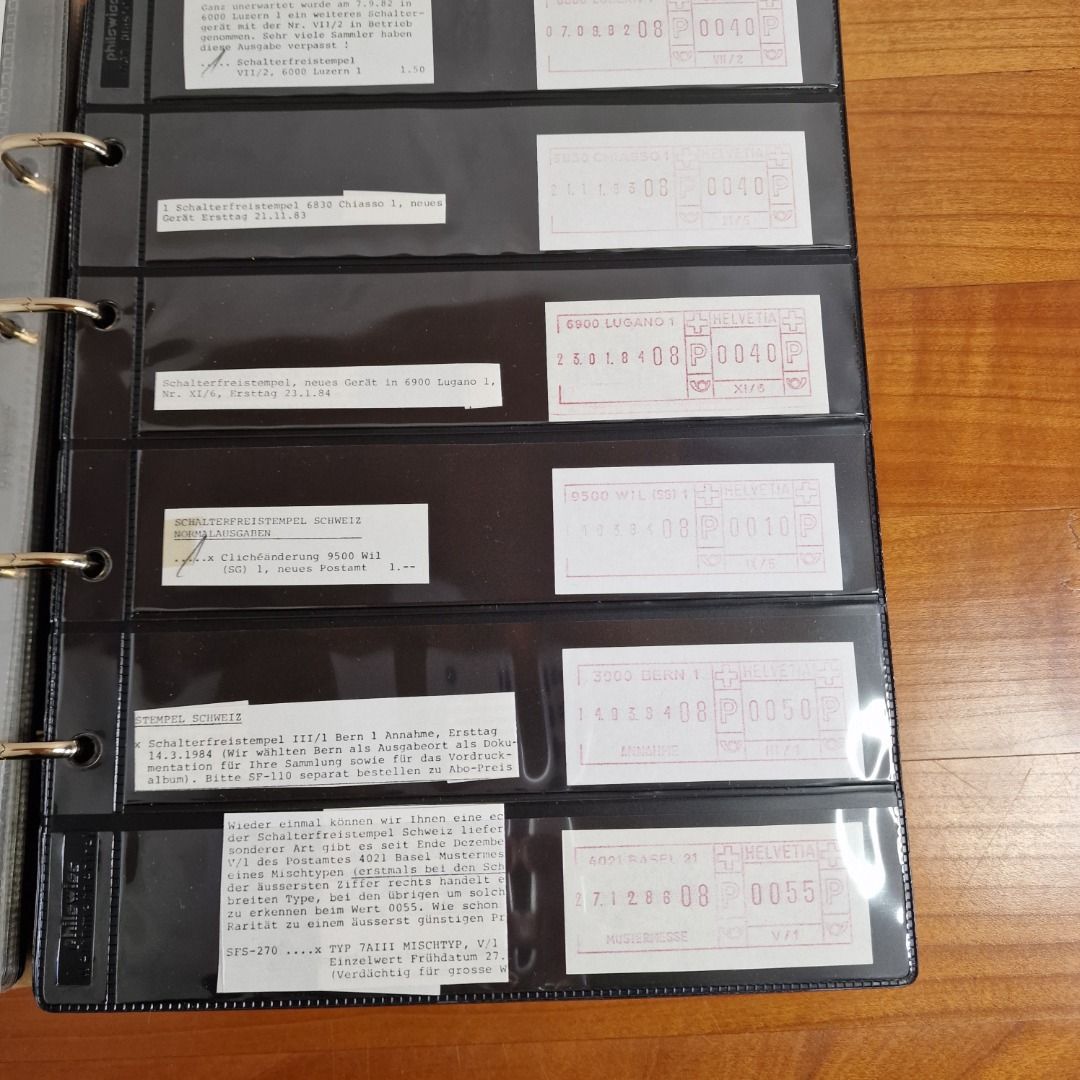 philswiss
Ganz unerwartet wurde am 7.9.82 in
6000 Luzern 1 ein weiteres Schalter-
gerät mit der Nr. VII/2 in Betrieb
genommen. Sehr viele Sammler haben
diese Ausgabe verpasst !
..... Schalterfreistempel
VII/2, 6000 Luzern 1 1.50
07.09.82 08 P 0040 P
VII/2
1 Schalterfreistempel 6830 Chiasso 1, neues
Gerät Ersttag 21.11.83
6830 CHIASSO 1 HELVETIA
21.11.83 08 P 0040 P
XI/5
Schalterfreistempel, neues Gerät in 6900 Lugano 1,
Nr. XI/6, Ersttag 23.1.84
6900 LUGANO 1 HELVETIA
23.01.84 08 P 0040 P
XI/6
SCHALTERFREISTEMPEL SCHWEIZ
NORMALAUSGABEN
.....x Clichéänderung 9500 Wil
(SG) 1, neues Postamt 1.--
9500 WIL (SG) 1 HELVETIA
08 P 0010 P
IX/6
STEMPEL SCHWEIZ
x Schalterfreistempel III/1 Bern 1 Annahme, Ersttag
14.3.1984 (Wir wählten Bern als Ausgabeort als Doku-
mentation für Ihre Sammlung sowie für das Vordruck-
album). Bitte SF-110 separat bestellen zu Abo-Preis
3000 BERN 1 HELVETIA
14.03.84 08 P 0050 P
ANNAHME III/1
Wieder einmal können wir Ihnen eine ec
der Schalterfreistempel Schweiz liefer
sonderer Art gibt es seit Ende Dezembe
V/1 des Postamtes 4021 Basel Mustermes
eines Mischtypen (erstmals bei den Sch
der äussersten Ziffer rechts handelt e
breiten Type, bei den übrigen um solch
zu erkennen beim Wert 0055. Wie schon
Rarität zu einem äusserst günstigen Pr
SFS-270 ....x TYP 7AIII MISCHTYP, V/1
Einzelwert Frühdatum 27.
(Verdächtig für grosse W
philswiss
4021 BASEL 21 HELVETIA
27.12.86 08 P 0055 P
MUSTERMESSE V/1